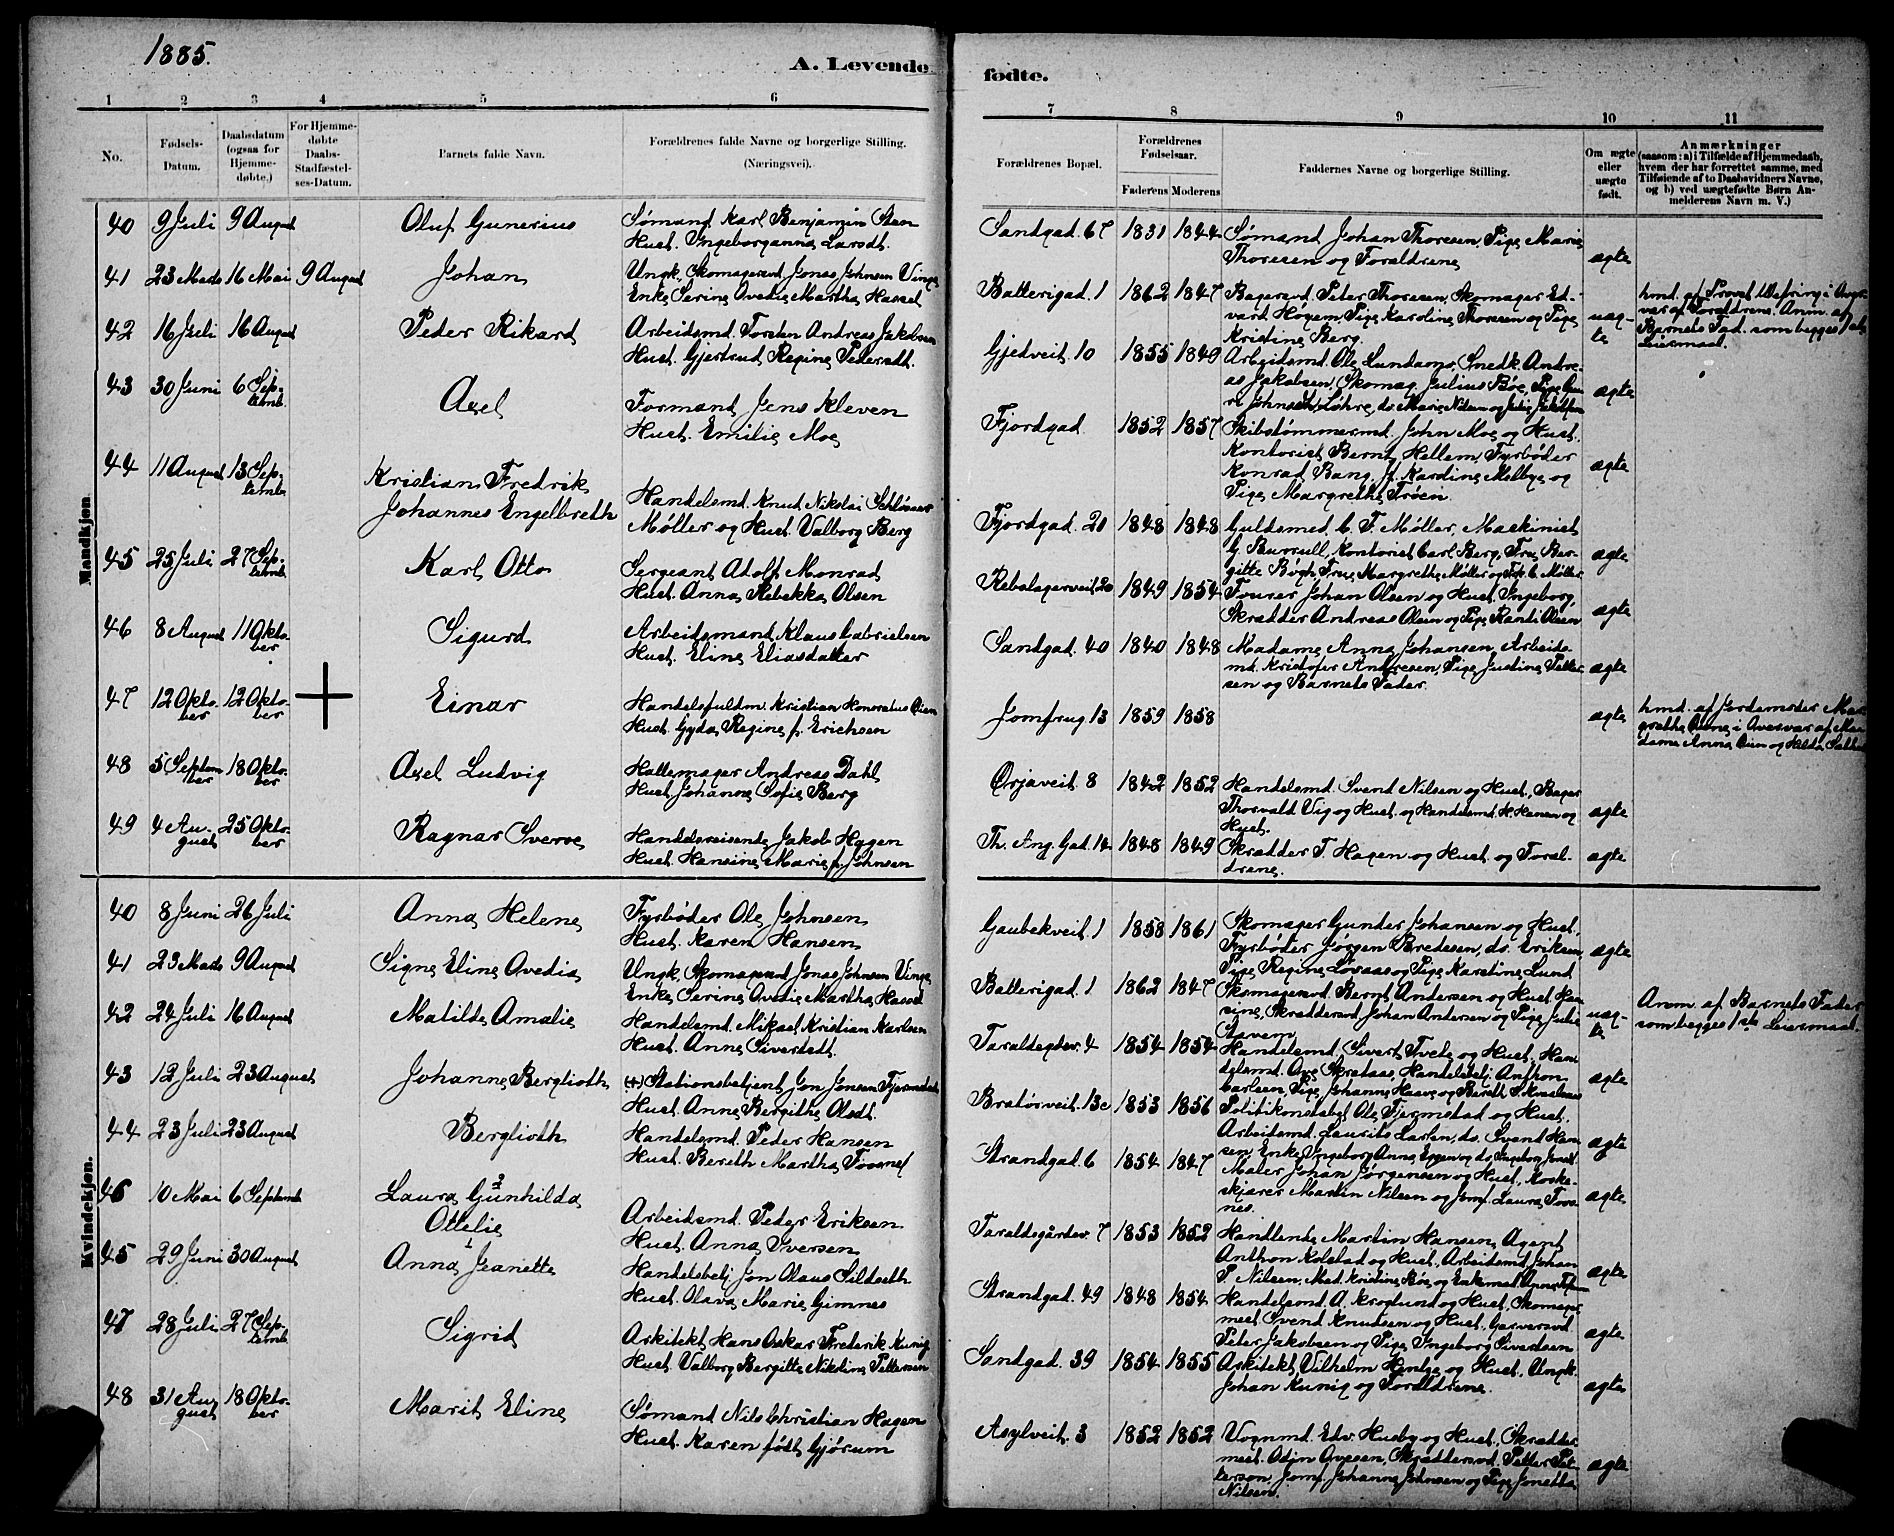 1885.
A. Levende
fødte.
1 2 3 4 5 6
7 8 9 10 11
No.
Fødsels-
Datum.
Daabsdatum
(ogsaa for
Hjemme-
døbte.)
For Hjemme-
døbte
Daabs-
Stadfæstel-
ses-Datum.
Barnets fulde Navn.
Forældrenes fulde Navne og borgerlige Stilling.
(Næringsvei).
Forældrenes Bopæl.
Forældrenes
Fødselsaar.
Faderens Moderens
Faddernes Navne og borgerlige Stilling.
Om ægte
eller
uægte
født.
Anmærkninger
(saasom: a) i Tilfælde af Hjemmedaab,
hvem der har forrettet samme, med
Tilføiende af to Daabsvidners Navne,
og b) ved uægtefødte Børn An-
melderens Navn m. V.)
Mandkjøn
40 9 Juli 9 August Oluf Gunerius Sømand Karl Benjamin Sten
Hust. Ingeborganna Larsdt.
Sandgad. 67 1831 1844 Sømand Johan Thoresen, Pige Marie
Thoresen og Forældrene ægte
41 23 Marts 16 Mai 9 August Johan Ungk. Skomagersvd. Jonas Johnsen Vinge
Enke Serine Ovedie Martha Hassel
Batterigad. 1 1862 1847 Bagersvd. Peter Thoresen, Skomager Ed-
vard Høyem, Pige Karoline Thoresen og Pige
Kristine Berg. uæg-
te
hmd. af Provst
var af Forældrene. Anm. af
Barnets Fad. som begges 1ste
Leiermaal.
42 16 Juli 16 August Peder Rikard Arbeidsmd. Torsten Andreas Jakobsen
Hust. Gjertrud Regine Pedersdt.
Gjedveit 10 1855 1849 Arbeidsmd. Ole Lundamo, Smedk. Andre-
as Jakobsen, Skomag. Julius Boe, Pige
ægte
43 30 Juni 6 Sep-
temb. Axel Formand Jens Kleven
Hust. Emilie Moe
Fjordgad 1852 1857 Skibstømmermd. John Moe og Hust.
Kontorist Bernt Hellem, Fyrbøder
Konrad Bang, Jf. Kardine Melbye og
Pige Margrethe Trøen. ægte
44 11 August 13 Sep-
temb. Kristian Fredrik
Johannes Engelbreth Handelsmd. Knud Nikolai Schlösser
Møller og Hust. Valborg Berg
Fjordgad. 20 1848 1848 Guldsmed C. F. Møller, Maskinist
G. Burrull, Kontorist Carl Berg, Fru Ber-
gitte Bøgh, Fru Margrethe Møller og Frk. C. Møller ægte
45 25 Juli 27 Sep-
temb. Karl Otto Sergeant Adolf Monrad
Hust. Anna Rebekka Olsen
Rebslagerveit 20 1849 1854 Fourer Johan Olsen og Hust. Ingeborg,
Skrædder Andreas Olsen og Pige Randi Olsen ægte
46 8 August 11 Okto-
ber Sigurd Arbeidsmand Klaus Gabrielsen
Hust. Eline Eliasdatter
Sandgad. 40 1840 1848 Madame Anna Johansen, Arbeids-
md. Kristofer Andresen, Pige Justine Petter-
sen og Barnets Fader. ægte
47 12 Okto-
ber 12 Okto-
ber Einar Handelsfuldm. Kristian Honoratus Øien
Hust. Gyda Regine f. Erichsen
Jomfrug 13 1859 1858 ægte
hmd. af Jordemoder Mar-
grethe i Overvær af Ma-
dame Anna Øien og Hilda
48 5 Septem
ber 18 Okto-
ber Axel Ludvig Hattemager Andreas Dahl
Hust. Johanne Sofie Berg
Ørjaveit 8 1842 1852 Handelsmd. Svend Nilsen og Hust., Bager
Thorvald Vig og Hust. og Handelsmd. H. Hansen og
Hust. ægte
49 4 Au-
gust 25 Okto-
ber Ragnar Sverre Handelsreisende Jakob Hagen
Hust. Hansine Marie f. Johnsen
Th. Ang. Gad. 14 1848 1849 Skrædder T. Hagen og Hust. og Foræl-
drene. ægte
Kvindekjøn.
40 8 Juni 26 Juli Anna Helene Fyrbøder Ole Johnsen
Hust. Karen Hansen
Gaubekveit 1 1858 1861 Skomager Gunder Johansen og Hust.
Fyrbøder Jørgen Bredesen, do. Eriksen,
Pige Regine Løvaas og Pige Karstine Lund ægte
41 23 Marts 9 August Signe Eline Ovedia Ungk. Skomagersvd. Jonas Johnsen Vinge
Enke Serine Ovedie Martha Hassel
Batterigad. 1 1862 1847 Skomagersvd. Bernt Andersen og Hust. Han
sine, Skræddersvd. Johan Andersen og Pige Julie
Stavem uæg-
te
Anm. af Barnets Fader
som begges 1ste Leiermaal.
42 24 Juli 16 August Matilde Amalie Handelsmd. Mikael Kristian Karlsen
Hust. Anne Sivertsdt.
Taraldsgdsv. 4 1854 1854 Handelsmd. Sivert Tvete og Hust., Han-
delsmd. Ove Skrataas, Handelsbtj. Anthon
Carlsen, Pige Johanne ægte
43 12 Juli 23 August Johanne Berglioth (+) Stationsbetjent Jon Jonsen Fjermestad
Hust. Anne Bergithe Olsdt.
Bratørveit. 13c 1853 1856 Politikonstabel Ole Fjermestad og Hust.
Arbeidsmd. Laurits Larsen, do. Svend Han
sen, Enke Ingeborg Anna ægte
44 23 Juli 23 August Berglioth Handelsmd. Peder Hansen
Hust. Bereth Martha Torsnes
Strandgad. 6 1854 1847 Maler Johan Jørgensen og Hust., Korke-
skjærer Martin Nilsen og Jomf. Laura Tors-
nes. ægte
46 10 Mai 6 Septemb. 2
Laura Gunhilda
Ottelie Arbeidsmd. Peder Eriksen
Hust. Anna Iversen
Taraldsgårdsv. 7 1853 1852 Handlende Martin Hansen, Agent
Anthon Kolstad og Hust., Arbeidsmd. Johan
P. Nilsen, Mad. Kristine Bøe og ægte
45 29 Juni 30 August 1
Anna Jeanette Handelsbtj. Jon Olaus Sildseth
Hust. Olava Marie Gimnes
Strandgad. 49 1848 1854 Handelsmd. A. Kroglund og Hust., Skomager
mest. Svend Knudsen og Hust., Garversvd.
Peter Jakobsen og Pige Ingeborg Sivertsen ægte
47 28 Juli 27 Sep-
temb. Sigrid Arkitekt Hans Oskar Frederik Kunig
Hust. Valborg Bergitte Nikoline Pettersen
Sandgad. 39 1854 1855 Arkitekt Vilhelm Hentze og Hust. Ungk.
Johan Kunig og Forældrene. ægte
48 31 Au-
gust 18 Okto-
ber Marit Eline Sømand Nils Christian Hagen
Hust. Karen født Gjørum
Asylveit. 3 1852 1852 Vognmd. Edv. Husby og Hust., Skrædder
mest. Odin Ovesen, Skræddersvd. Petter Pet-
tersen, Jomf. Johanne Johnsen og Pige Jonetta
Nilsen. ægte